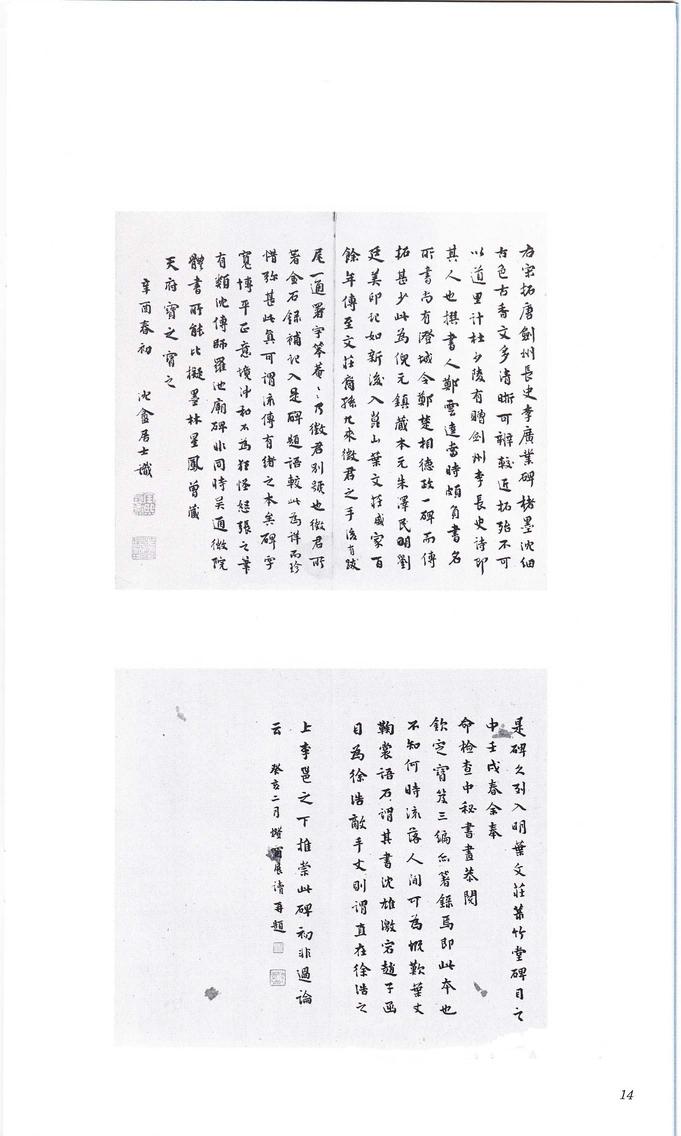 右宋拓唐劍州長史李廣業碑楮墨沈細
古色古香文多清晰可辨較近拓殆不可
以道里計杜少陵有贈劍州李長史詩即
其人也撰書人鄭雲逵當時頗負書名
所書尚有澄城令鄭楚相德政一碑而傳
拓甚少此為倪元鎮藏本元朱澤民明劉
廷美印記如新後入崑山葉文莊盛家百
餘年傳至文莊裔孫九來徵君之手後有跋
尾一通署字笨菴笨菴乃徵君別號也徵君所
著金石錄補記入是碑題語較此為詳而珍
惜弥甚此真可謂流傳有緒之本矣碑字
寬博平正意境沖和不為狂怪姃張之筆
有類沈傳師羅池廟碑非同時吴通微院
體書所能比擬墨林星鳳曾藏
天府寶之寶之
辛酉春初 沈盦居士識
是碑久列入明葉文莊菉竹堂碑目之
中壬戌春余奉
命檢查中秘書畫恭閱
欽定寶笈三編亦著錄焉即此本也
不知何時流落人間可為慨歎葉丈
鞠裳語石謂其書沈雄激宕趙子函
目為徐浩敵手丈則謂直在徐浩之
上李邕之下推崇此碑初非過論
云 癸亥二月 展讀再題
14